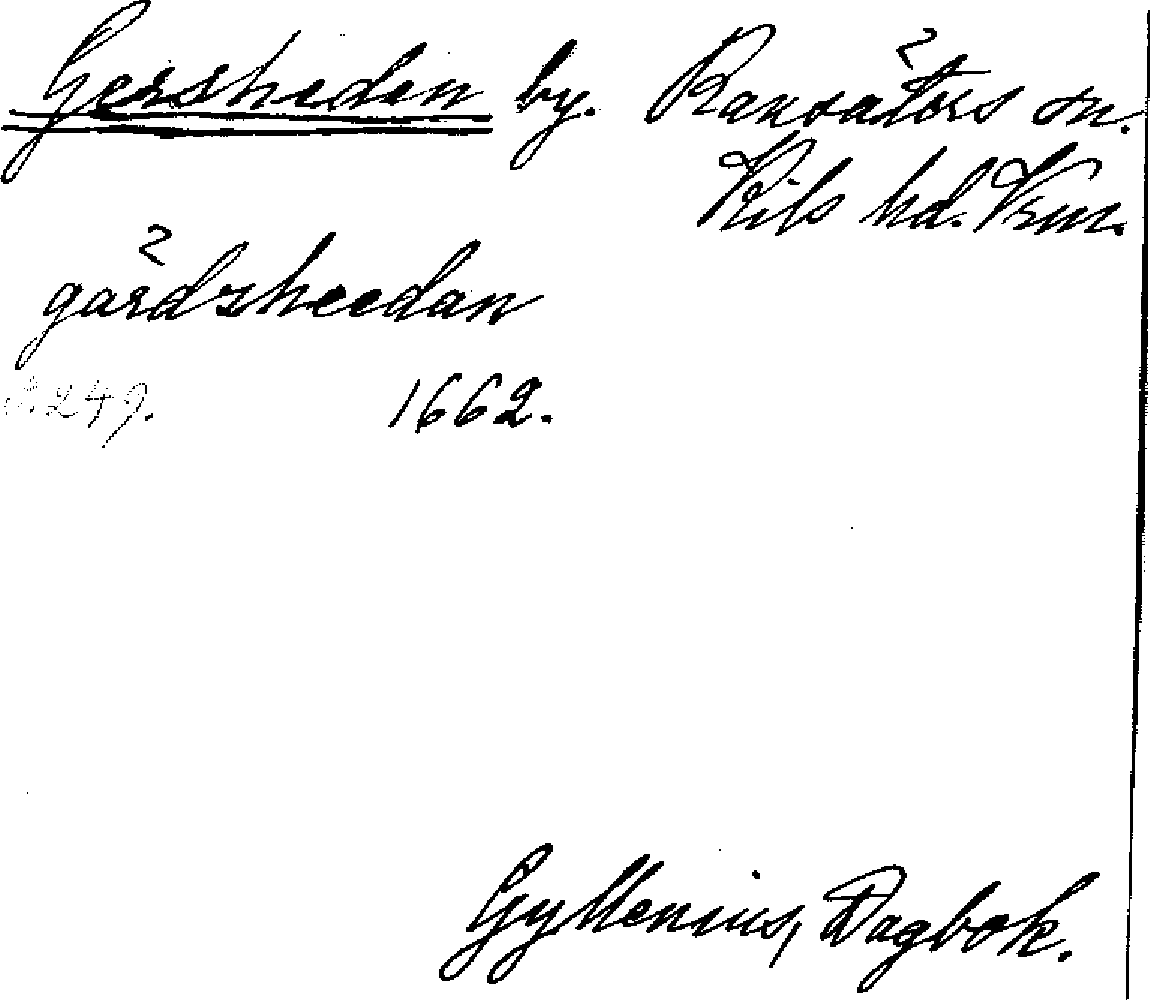 Gersheden by. Ransäters sn.
Kils hd. Vrm.
gårdzheedan
249. 1662.
Gyllenius, Dagbok.